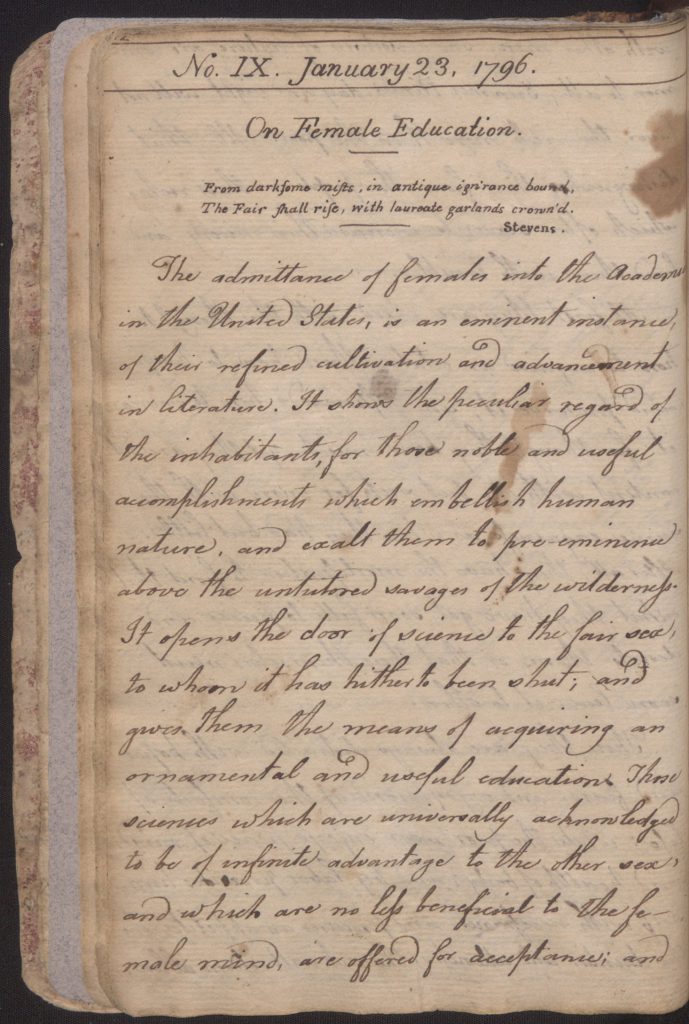 No. IX. January 23, 1796.
On Female Education.
From darksome mists, in antique ign'rance bound,
The Fair shall rise, with laureate garlands crown'd.
Stevens.
The admittance of females into the
in the United States, is an eminent instance,
of their refined cultivation and advancement
in literature. It shows the peculiar regard of
the inhabitants, for those noble and useful
accomplishments which embellish human
nature, and exalt them to pre-eminence
above the untutored savages of the wilderness.
It opens the door of science to the fair sex,
to whom it has hitherto been shut; and
gives them the means of acquiring an
ornamental and useful education. Those
sciences which are universally acknowledged
to be of infinite advantage to the other sex,
and which are no less beneficial to the fe-
male mind, are offered for acceptance; and